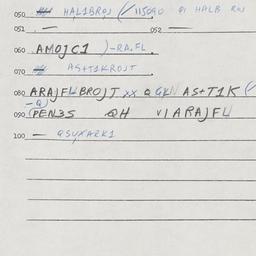 050 HAL1BROJ (/115090 01 HALB ROJ
051 — 052 —
060 AMOJC1 )-RA.FL
070 AS+T1KROJT
080 ARAJFLBROJT XX Q GKN AS+T1K (/
-Q)
090 (PEN3S QH VIARAJFL
100 — QSYXARK1